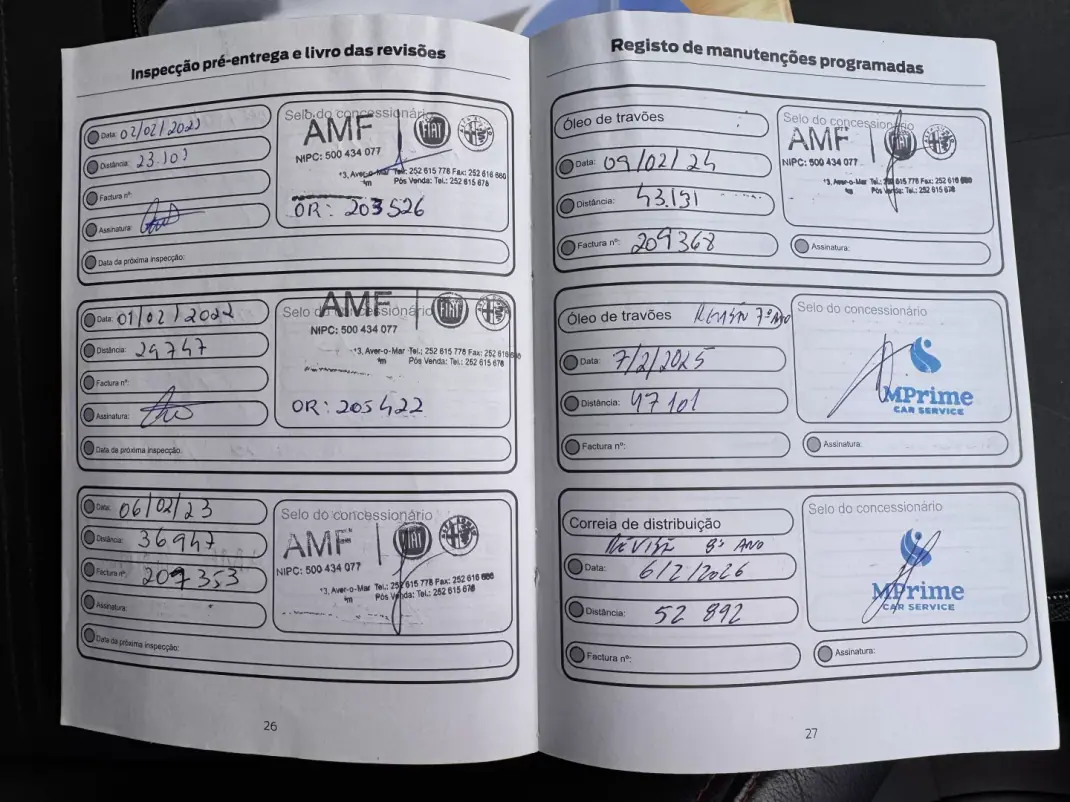 Inspecção pré-entrega e livro das revisões
Data: 02/02/2021
Distância: 23.103
Factura nº:
Assinatura:
Data da próxima inspecção:
Selo do concessionário
AMF FIAT
NIPC: 500 434 077
*3, Aver-o-Mar Tel.: 252 615 778 Fax: 252 616 660
Pós Venda: Tel.: 252 615 678
OR: 203526
Data: 01/02/2022
Distância: 29747
Factura nº:
Assinatura:
Data da próxima inspecção:
Selo do concessionário
AMF FIAT
NIPC: 500 434 077
*3, Aver-o-Mar Tel.: 252 615 778 Fax: 252 616
Pós Venda: Tel.: 252 615 678
OR: 205422
Data: 06/02/23
Distância: 36947
Factura nº: 207353
Assinatura:
Data da próxima inspecção:
Selo do concessionário
AMF FIAT
NIPC: 500 434 077
*3, Aver-o-Mar Tel.: 252 615 778 Fax: 252 616
Pós Venda: Tel.: 252 615 678
26
Registo de manutenções programadas
Óleo de travões
Data: 09/02/24
Distância: 43.131
Factura nº: 209368
Selo do concessionário
AMF FIAT
NIPC: 500 434 077
*3, Aver-o-Mar Tel.: 252 615 778 Fax: 252 616
Pós Venda: Tel.: 252 615 678
Assinatura:
Óleo de travões 7º ANO
Data: 7/2/2025
Distância: 47101
Factura nº:
Selo do concessionário
MPrime
CAR SERVICE
Assinatura:
Correia de distribuição
8º ANO
Data: 6/2/2026
Distância: 52 892
Factura nº:
Selo do concessionário
MPrime
CAR SERVICE
Assinatura:
27